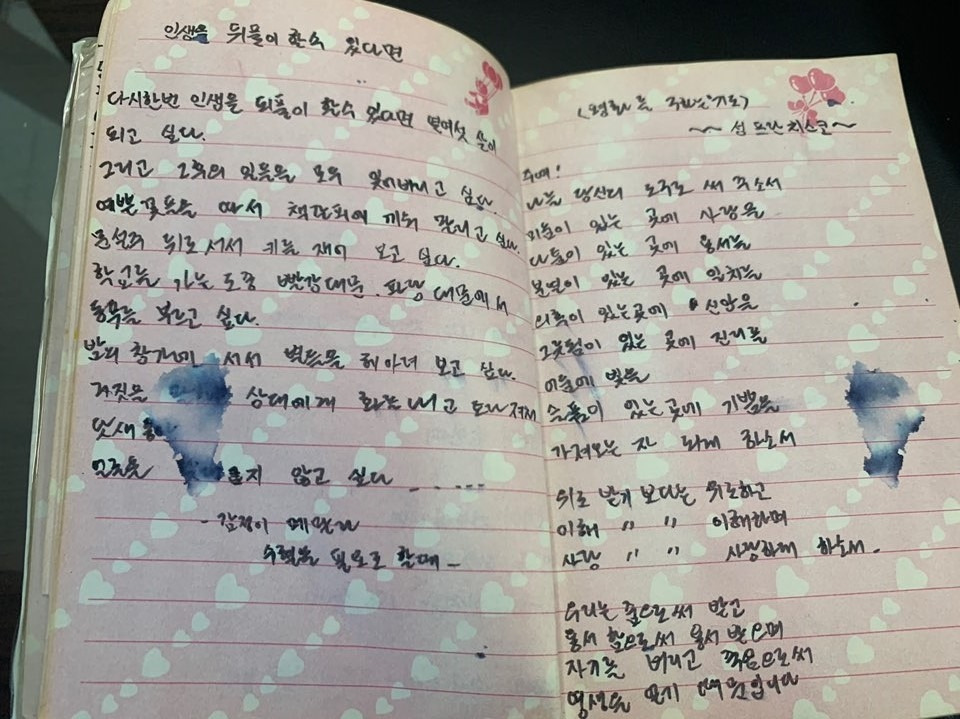 인생을 뒤풀이 할수 있다면
다시한번 인생을 되풀이 할수 있다면 열여섯 살이
되고 싶다.
그리고 그후의 있음을 모두 잊어버리고 싶다.
예쁜 꽃들을 따서 책갈피에 끼워 말리고 싶다.
뒤로서서 키를 재어 보고 싶다.
학교를 가는 도중 빨강대문. 파랑 대문에서
동무를 부르고 싶다.
밤의 창가에 서서 별들을 헤아려 보고 싶다.
거짓을 상대에게 화를 내고 토라져서
몇새
않고 싶다
- 감정이 메말라
수혈을 필요로 할때 -
(평화를 구하는 기도)
~~ 성 프란치스코~
주여!
나를 당신의 도구로 써 주소서
미움이 있는 곳에 사랑을
다툼이 있는 곳에 용서를
분열이 있는 곳에 일치를
의혹이 있는곳에 신앙을
그릇됨이 있는 곳에 진리를
어둠에 빛을
슬픔이 있는곳에 기쁨을
가져오는 자 되게 하소서
위로 받기 보다는 위로하고
이해 〃 〃 이해하며
사랑 〃 〃 사랑하게 하소서.
우리는 줌으로써 받고
용서 함으로써 용서 받으며
자기를 버리고 죽음으로써
영생을 얻기 때문입니다